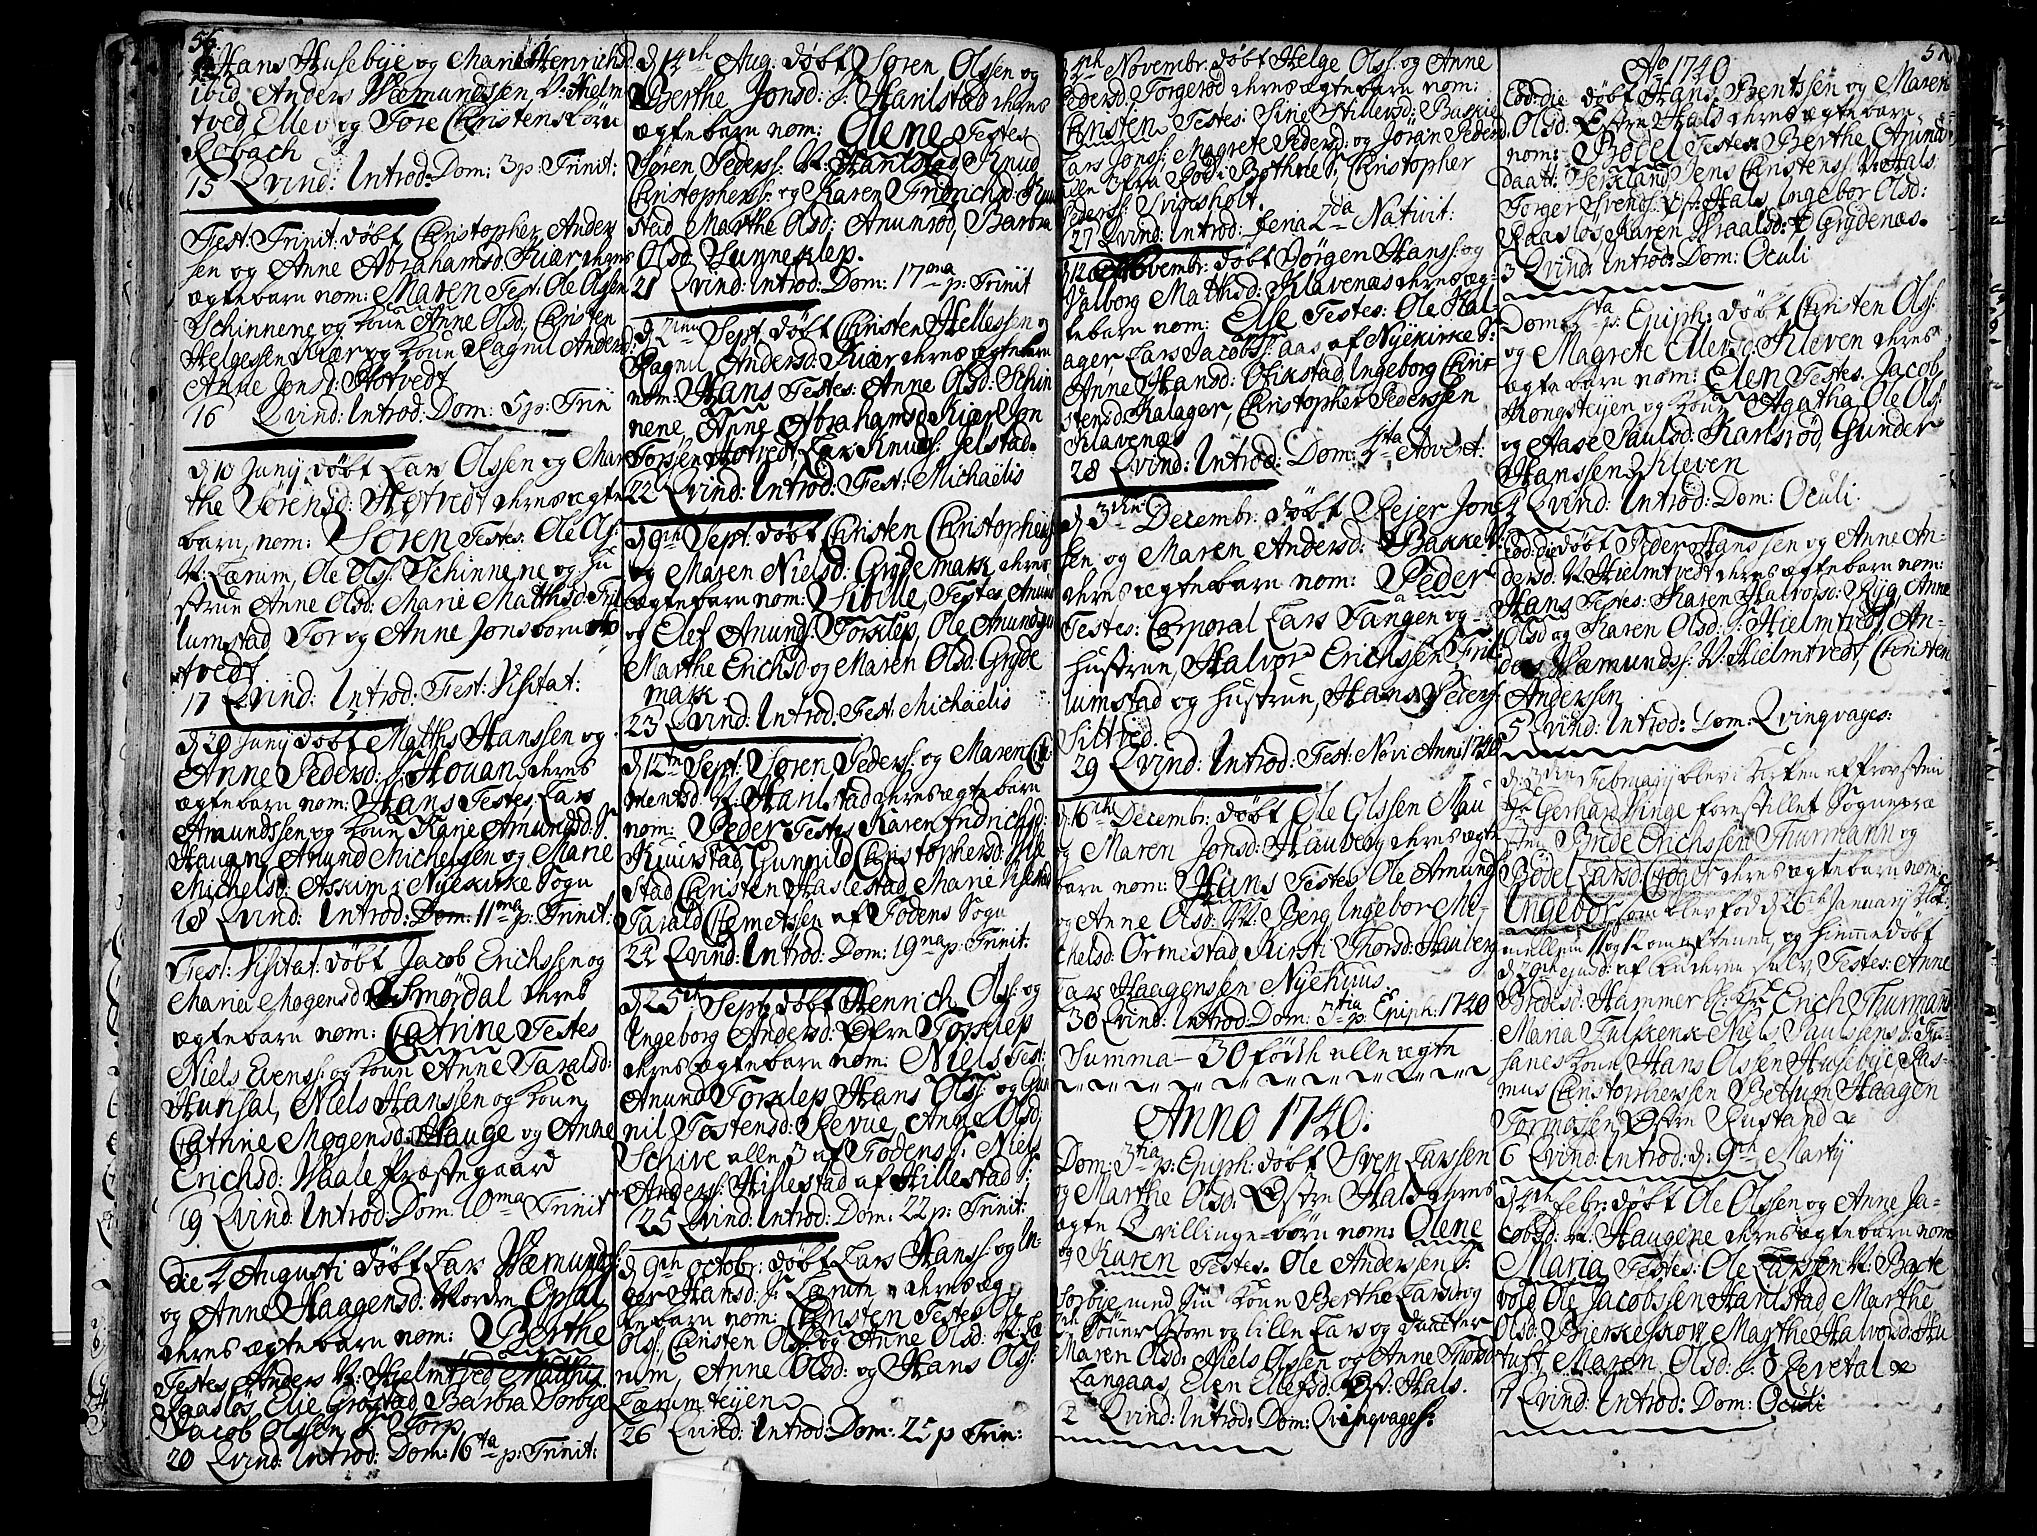 56.
Hans Husebÿe og Marie Henrichsd:
ibid, Anders Wæmundssen, V: Hielm
tved, Ellev og Tore Christensbörn
Robach
15 Qvind: Introd: Dom: 3 p: Trinit:
Fest: Trinit: döbt Christopher Ander
sen og Anne Abrahamsd: Kiær deres
ægtebarn nom: Maren Test: Ole Olsen
Schinnene og Koun Anne Olsd, Christen
Helgessen Kiær og Koun Ragnil Andersd:
Anne Jonsd: Hotvedt
16 Qvind: Introd: Dom: 5 p: Trin
d 10 Junÿ döbt Lars Olssen og Mar
the Sörensd: Hotvedt deres ægte
barn, nom: Sören Testes: Ole Ols:
V: Lærum, Ole Ols: Schinnene og hu
strue Anne Olsd: Marie Matthisd: Ful
lumstad Tor og Anne Jonsbörn Ho
tvedt
17 Qvind: Introd: Fest: Visitat:
d 20 Junÿ döbt Matthis Hanssen og
Anne Pedersd: S: Houan deres
ægtebarn nom: Hans Testes Lars
Amundssen og Koun Karie Amundsd: S:
Haugan, Anund Michelssen og Marie
Michelsd: Askim i Nÿekirke Sogn
18 Qvind: Introd: Dom: 11ma p: Trinit:
Fest: Visitat: döbt Jacob Erichssen og
Maria Mogensd: Smørdal deres
ægtebarn nom: Catrine Testes
Niels Evens: og Koun Anne Taralsd:
Hunsal, Niels Hanssen og Koun
Catrine Mogensd: Hauge og Anne
Erichsd: Waale Præstegaard
19 Qvind: Introd: Dom: 10ma Trinit
Die 4 Augusti döbt Lars Wæmunds:
og Anne Haagensd: Nordre Epsal
deres ægtebarn nom: Berthe
Testes Anders V: Hielmtved Matthis
Raaslös, Elie Grøstad, Barbra Sörbÿe
Jacob Olssen S: Torp
20 Qvind: Introd: Dom: 16ta p: Trinit:
d 14th Aug: döbt Sören Olssen og
Berthe Jonsd: S: Hanlstad deres
ægtebarn nom: Olene Testes
Sören Peders: V: Hanlstad, Knud
Christophers: og Karen Fridrichsd: Kiuer
stad Marthe Olsd: Anumröd, Barbra
Olsd Sunneklep.
21 Qvind: Introd: Dom: 17ma p: Trinit
d 2den Sept: döbt Christen Hellessen og
Ragnil Andersd: Kiær deres ægtebarn
nom: Hans Testes: Anne Olsd: Schin
nene, Anne Abrahamsd Kiær, Jon
Torssen Hotvedt, Lars Knuds: Jelstad.
22 Qvind: Introd: Fest: Michaëlis
d 9th Sept: döbt Christen Christophers:
og Maren Nielsd: Grydemark deres
ægtebarn nom: Sibille, Testes Amund
og Elef Anunds: Torsklep, Ole Anunds
Marthe Erichsd og Maren Olsd: Gryde
mark
23 Qvind: Introd: Fest: Michaëlis
d 12te Sept: Sören Peders: og Maren Cle
mentsd: V: Hanlstad deres ægtebarn
nom: Peder Testes Karen Fridrichsd:
Kiuerstad, Gunnild Christophersd:
stad Christen Haslestad, Marie
Tarald Clemetsen af Fodens Sogn
24 Qvind: Introd: Dom: 19na p: Trinit:
d 25th Sept: döbt Henrich Ols: og
Ingeborg Andersd: Øfre Torsklep
deres ægtebarn nom: Niels Test:
Anund Torsklep Hans Ols: og Gun
nil Tostensd: Revue, Anne Olsd
Schive alle 3 af Fodens S: Niels
Anders: Hillestad af Hillestad S:
25 Qvind: Introd: Dom: 22 p: Trinit:
d 9th octobr: döbt Lars Hans: og In-
ger Hansd: S: Lærum deres æg
tebarn nom: Christen Testes Ole
Ols:, Christen Ols: og Anne Olsd: V: Læ
rum, Anne Olsd: og Hans Ols:
Lærumteÿen
26 Qvind: Introd: Dom: 25 p Trin:
d 4th Novembr: döbt Helge Ols: og Anne
Pedersd: Torgeröd deres ægtebarn nom:
Christen Testes: Sine Stillersd: Bakke
Lars Jons: Magrete Pedersd: og Joran Pedersd
den öfra Röd i Bothne S: Christopher
Peders: Svinsholt.
27 Qvind: Introd: feria 2da Nativit:
d 12 Novembr: döbt Jörgen Hans: og
Valborg Matthisd: Klavenæs deres æg-
tebarn nom: Else Testes: Ole Kal-
ager, Lars Jacobs: Aas af Nÿekirke S:
Anne Hansd: Fikstad, Ingeborg Chri
stensd: Kalager, Christopher Pederssen
Klavenæs
28 Qvind: Introd: Dom: 4ta Advent:
d 3die Decembr: döbt Reier Jon
sen og Maren Andersd: Bakke
deres ægtebarn nom: Peder
Testes: Corporal Lars Tangen og
hustrue, Halvor Erichssen Ful
lumstad og hustrue, Hans Peders:
Siltved.
29 Qvind: Introd: Fest: Novi Anni 1740
d 16th Decembr: döbt Ole Olssen Hau
og Maren Jonsd: Hauberg deres ægte
barn nom: Hans Testes Ole Amunds
og Anne Olsd: V: Berg, Ingebor Mi-
chelsd: Ormestad, Kirsti Thorsd: Hauberg
Lars Haagensen Nÿehuus
30 Qvind: Introd: Dom: 3tia p: Epiph: 1740
Summa – 30 födde alle ægte
Anno 1740.
Dom: 3tia p: Epiph: döbt Sven Larssen
og Marthe Olsd: Østre Hals deres
ægte Tvillinge-börn nom: Olene
og Karen Testes. Ole Andersen S:
Sörbÿe med sin Koun Berthe Larsd og
sönner Jörn og lille Lars og daatter
Maren Olsd: Niels Olssen og Anne Thorsd
Langaas, Elen Ellefsd: Øst: Hals.
2 Qvind: Introd: Dom: Qvinqvages:
57
Ao 1740
Eod: die döbt Hans Bentssen og Maren
Olsd: Østre Hals deres ægtebarn
nom: Bodel Testes Berthe Anunds
daatt: Jerseland Jens Christens: V: Hals
Torger Svends: Øst: Hals Ingebor Olsd:
Raaslös Karen Waalsd: Grydenæs.
3 Qvind: Introd: Dom: Oculi
Dom: 4ta p: Epiph: döbt Christen Ols:
og Magrete Ellevsd: Kleven deres
ægtebarn nom: Elen Testes. Jacob
Kongsteÿen og Koun Agatha Ole Ols:
og Aase Paulsd: Kansröd, Gunder
Hanssen Kleven
4 Qvind: Introd: Dom: Oculi.
Eod: die döbt Peder Hanssen og Anne An-
dersd: V: Hielmtvedt deres ægtebarn nom:
Hans Testes: Karen Halvorsd: Rÿg, Anne
Olsd og Karen Olsd: S: Hielmtvedt, An-
ders Wæmunds: V: Hielmtvedt, Christen
Anderssen
5 Qvind: Introd: Dom: Qvinqvages:
d: 3die Februarÿ blev i Kirken af Provsten
Hr Gerhard Vinge forestillet Sognepræ
sten Brede Erichssen Thurmann og
Bodel Larsd: Crøger deres ægtebarn nom:
Ingebor, som blev föd d 26th Januarÿ Kl:
mellem 11 og 12 om aftenen, og hiemmedöbt
d 29th ejusd: af faderen selv Testes: Anne
Bredesd: Hammer Erich Thurmann
Maria Falkens Niels Paulsens i Fu-
sanes Koun, Hans Olssen Husebÿe Ras-
mus Christophersen Bettum Haagen
Tormosen Øfre Rustand
6 Qvind: Introd: d: 9th Martÿ
d 4th Febr: döbt Ole Olssen og Anne Ja-
cobsd: V: Haugene deres ægtebarn nom
Maria Testes: Ole Larssen V: Bache
vold Ole Jacobssen Hanlstad Marthe
Olsd: Bierkeskov, Marthe Halvorsd: Hu
tuft, Maren Olsd: S: Revetal
7 Qvind: Introd: Dom: Oculi